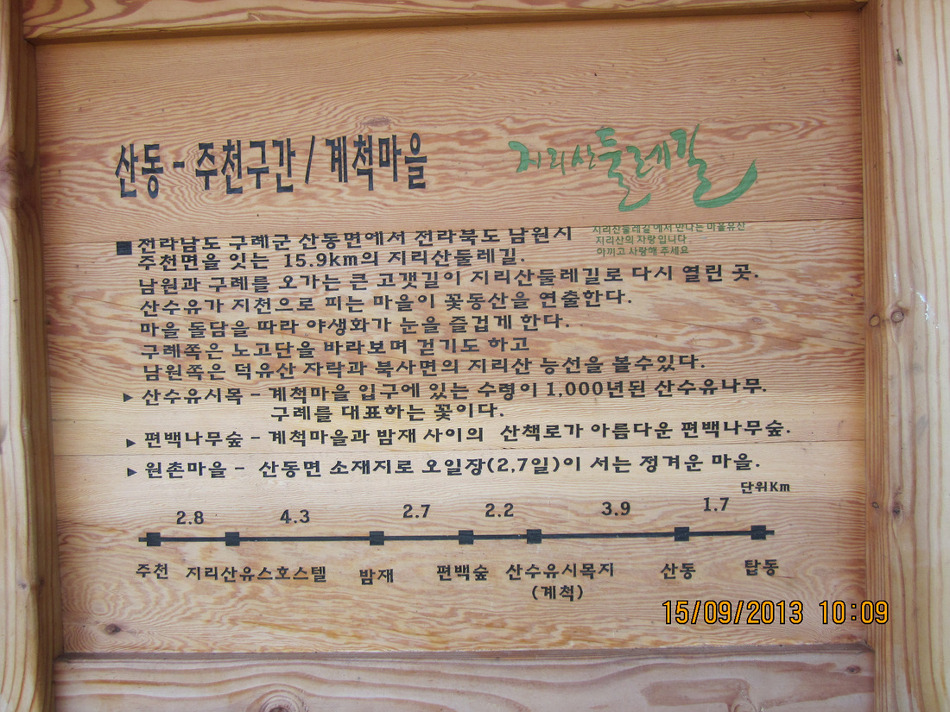 산동 - 주천구간 / 계척마을
지리산둘레길
지리산둘레길에서 만나는 마을유산
지리산의 자랑입니다
아끼고 사랑해 주세요
■ 전라남도 구례군 산동면에서 전라북도 남원시
주천면을 잇는 15.9km의 지리산둘레길.
남원과 구례를 오가는 큰 고갯길이 지리산둘레길로 다시 열린 곳.
산수유가 지천으로 피는 마을이 꽃동산을 연출한다.
마을 돌담을 따라 야생화가 눈을 즐겁게 한다.
구례쪽은 노고단을 바라보며 걷기도 하고
남원쪽은 덕유산 자락과 북사면의 지리산 능선을 볼수있다.
▶ 산수유시목 - 계척마을 입구에 있는 수령이 1,000년된 산수유나무.
구례를 대표하는 꽃이다.
▶ 편백나무숲 - 계척마을과 밤재 사이의 산책로가 아름다운 편백나무숲.
▶ 원촌마을 - 산동면 소재지로 오일장(2,7일)이 서는 정겨운 마을.
단위Km
2.8 4.3 2.7 2.2 3.9 1.7
주천 지리산유스호스텔 밤재 편백숲 산수유시목지 산동 탑동
(계척)
15/09/2013 10:09